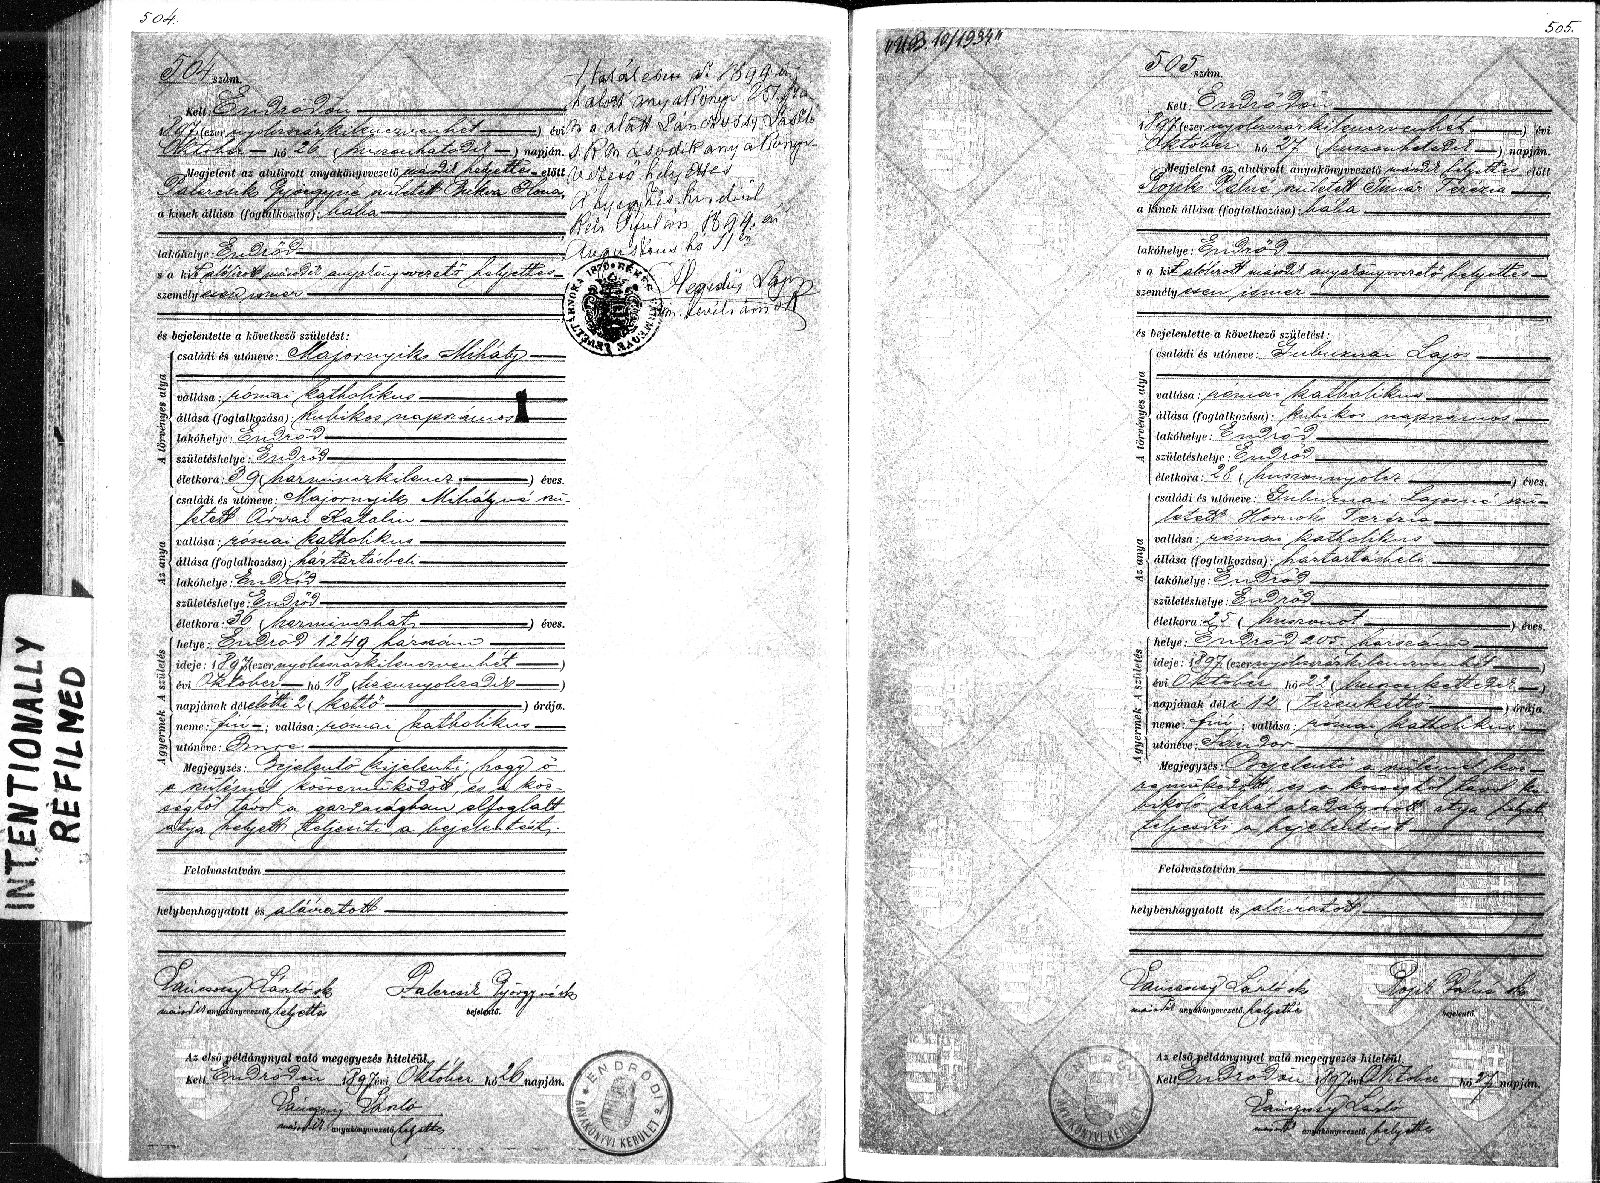 504.
504 szám.
Kelt Endrődön
1897 (ezernyolcszázkilenczvenhét) évi
Október hó 26 (huszonhatodik) napján.
Megjelent az alulirott anyakönyvvezető másod helyettes előtt
Györgyné született Ilona,
a kinek állása (foglalkozása): bába
lakóhelye: Endrőd
s a kit alólirott másod anyakönyvvezető helyettes
személyesen ismer
és bejelentette a következő születést:
A törvényes atya
családi és utóneve: Majornyik Mihály
vallása: római katholikus
állása (foglalkozása): kubikos napszámos
lakóhelye: Endrőd
születéshelye: Endrőd
életkora: 39 (harminczkilencz) éves.
Az anya
családi és utóneve: Majornyik Mihályné szü-
letett Árvai Katalin
vallása: római katholikus
állása (foglalkozása): háztartásbeli
lakóhelye: Endrőd
születéshelye: Endrőd
életkora: 36 (harminczhat) éves.
A gyermek A születés
helye: Endrőd 1249 házszám
ideje: 1897 (ezernyolcszázkilenczvenhét)
évi Október hó 18 (tizennyolczadik)
napjának délelőtti 2 (kettő) órája.
neme: fiú; vallása: római katholikus
utóneve: Imre
Megjegyzés: Bejelentő kijelenti, hogy ő
a szülésnél közreműködött, és a köz-
ségtől távol a gazdaságban elfoglalt
atya helyett teljesiti a bejelentést.
Felolvastatván
helybenhagyatott és aláiratott
László sk
másod anyakönyvvezető helyettes
Györgyné sk
bejelentő.
Az első példánynyal való megegyezés hiteléül.
Kelt Endrődön 1897 évi Október hó 26 napján.
László
másod anyakönyvvezető helyettes
ENDRŐDI
ANYAKÖNYVI KERÜLET
1899
László
s. k. második anyakönyv-
vezető helyettes
A hiteléül
Gyulán
Augusztus hó
Hegedüs
1870 BÉKÉS VÁRMEGYE LEVÉLTÁRNOKA
INTENTIONALLY
REFILMED
505.
10/1934
505 szám.
Kelt Endrődön
1897 (ezernyolcszázkilenczvenhét) évi
Október hó 27 (huszonhetedik) napján.
Megjelent az alulirott anyakönyvvezető másod helyettes előtt
Pálné született Teréz
a kinek állása (foglalkozása): bába
lakóhelye: Endrőd
s a kit alólirott másod anyakönyvvezető helyettes
személyesen ismer
és bejelentette a következő születést:
A törvényes atya
családi és utóneve: Gubucznai Lajos
vallása: római katholikus
állása (foglalkozása): kubikos napszámos
lakóhelye: Endrőd
születéshelye: Endrőd
életkora: 28 (huszonnyolcz) éves.
Az anya
családi és utóneve: Gubucznai Lajosné szü-
letett Hornok Terézia
vallása: római katholikus
állása (foglalkozása): háztartásbeli
lakóhelye: Endrőd
születéshelye: Endrőd
életkora: 25 (huszonöt) éves.
A gyermek A születés
helye: Endrőd 205 házszám
ideje: 1897 (ezernyolcszázkilenczvenhét)
évi Október hó 22 (huszonkettedik)
napjának déli 12 (tizenkettő) órája.
neme: fiú; vallása: római katholikus
utóneve: Sándor
Megjegyzés: Bejelentő a szülésnél köz-
reműködött, és a községtől távol ku-
bikoló tehát akadályozott atya helyett
teljesiti a bejelentést
Felolvastatván
helybenhagyatott és aláiratott
László sk
másod anyakönyvvezető helyettes
Pálné sk
bejelentő.
Az első példánynyal való megegyezés hiteléül.
Kelt Endrődön 1897 évi Október hó 27 napján.
László
másod anyakönyvvezető helyettes
ANYAKÖNYVI KERÜLET